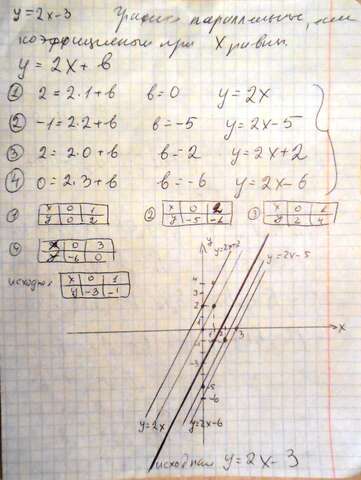 y = 2x - 3 Графики параллельные, если
коэффициенты при X равны.
y = 2x + b
① 2 = 2·1 + b b = 0 y = 2x
② -1 = 2·2 + b b = -5 y = 2x - 5
③ 2 = 2·0 + b b = 2 y = 2x + 2
④ 0 = 2·3 + b b = -6 y = 2x - 6
① x 0 1 ② x 0 2 ③ x 0 1
y 0 2 y -5 -1 y 2 4
④ x 0 3
y -6 0
исходн. x 0 1
y -3 -1
y
y=2x+2
y=2x-5
4
3
2
1
1 2 3 x
-1
-3
-5
-6
y=2x y=2x-6
исходная y = 2x - 3